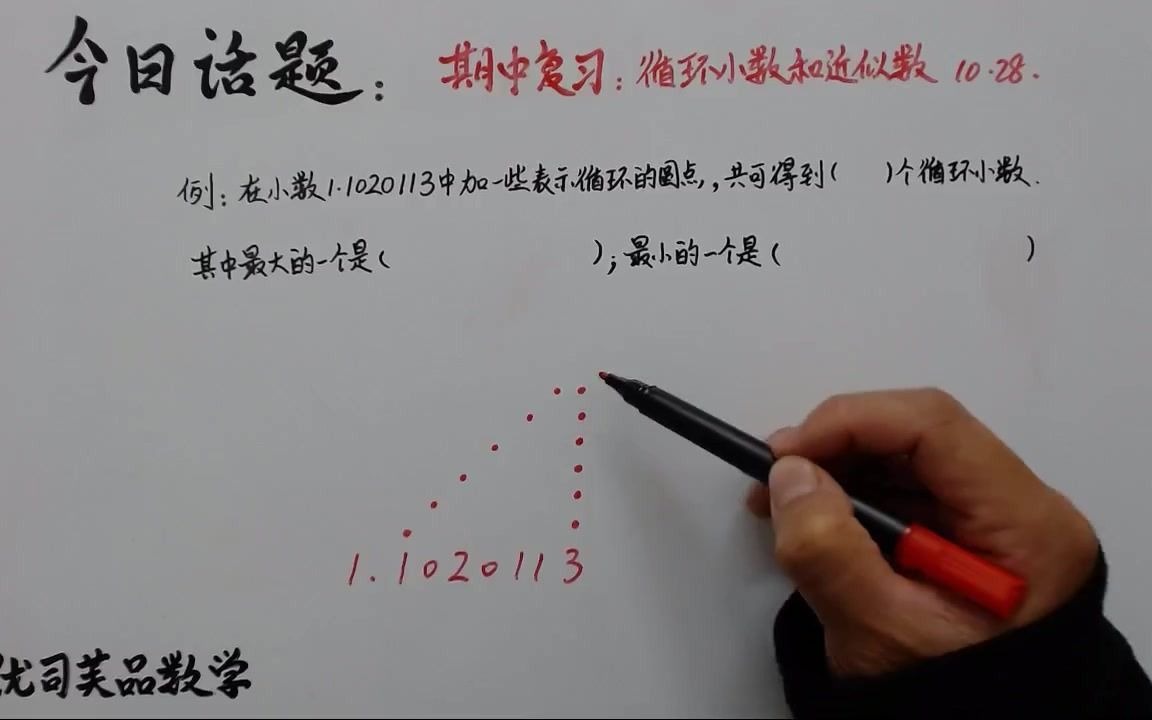 今日话题：
期中复习：循环小数和近似数 10.28.
例：在小数1.1020113中加一些表示循环的圆点，共可得到(　)个循环小数.
其中最大的一个是(　　　)；最小的一个是(　　　)
1.1020113
优司芙品数学